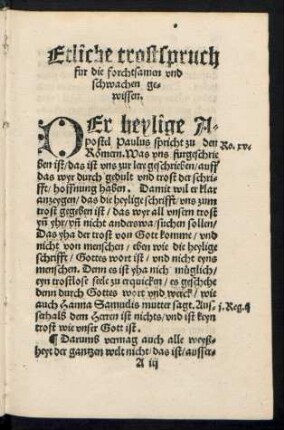 Etliche trostspruch
fur die forchtsamen vnd
schwachen ge-
wissen.
DEr heylige A-
postel Paulus spricht zu den
Römern. Was vns furgeschrie
ben ist/das ist vns zur lere geschrieben/auff
das wyr durch gedult vnd trost der schri-
fft/ hoffnung haben. Damit wil er klar
anzeygen/ das die heylige schrifft/ vns zum
trost gegeben ist / das wyr all vnsern trost
yn yhr/ vnd nicht anderswa suchen sollen/
Das yha der trost von Gott komme/ vnd
nicht von menschen / eben wie die heylige
schrifft / Gottes wort ist / vnd nicht eyns
menschen. Denn es ist yha nich müglich/
eyn trostlose seele zu erquicken/ es geschehe
denn durch Gottes wort vnd werck/ wie
auch Hanna Samuelis mutter sagt. Aus-
serhalb dem Herren ist nichts/ vnd ist keyn
trost wie vnser Gott ist.
¶ Darumb vermag auch alle weyß-
heyt der gantzen welt nicht/ das ist/ ausser-
A iij
Ro. xv.
j. Reg.